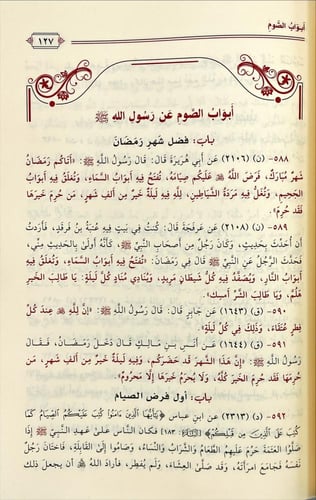 أبواب الصوم
١٢٧
أَبوَابُ الصَّومِ عَن رَسُولِ اللهِ ﷺ
باب: فضل شهرِ رَمَضَانَ
٥٨٨- (ن) (٢١٠٦) عَن أَبِي هُرَيْرَةَ قَالَ: قَالَ رَسُولُ اللَّهِ ﷺ: «أَتَاكُم رَمَضَانُ
شَهْرٌ مُبَارَكٌ، فَرَضَ اللَّهُ عَلَيكُم صِيَامَهُ، تُفتَحُ فِيهِ أَبوَابُ السَّمَاءِ، وَتُغلَّقُ فِيهِ أَبوَابُ
الجَحِيمِ، وَتُغَلُّ فِيهِ مَرَدَةُ الشَّيَاطِينِ، لِلَّهِ فِيهِ لَيلَةٌ خَيرٌ مِن أَلفِ شَهرٍ، مَن حُرِمَ خَيرَهَا
فَقَد حُرِمَ».
٥٨٩- (ن) (٢١٠٨) عَن عَرفَجَةَ قَالَ: كُنتُ فِي بَيتٍ فِيهِ عُتبَةُ بنُ فَرقَدٍ، فَأَرَدتُ
أَن أُحَدِّثَ بِحَدِيثٍ، وَكَانَ رَجُلٌ مِن أَصحَابِ النَّبِيِّ ﷺ، كَأَنَّهُ أَولَىٰ بِالحَدِيثِ مِنِّي،
فَحَدَّثَ الرَّجُلُ عَنِ النَّبِيِّ ﷺ قَالَ فِي رَمَضَانَ: «تُفتَحُ فِيهِ أَبوَابُ السَّمَاءِ، وَتُغلَّقُ فِيهِ
أَبوَابُ النَّارِ، وَيُصَفَّدُ فِيهِ كُلُّ شَيطَانٍ مَرِيدٍ، وَيُنَادِي مُنَادٍ كُلَّ لَيلَةٍ: يَا طَالِبَ الخَيرِ
هَلُمَّ، وَيَا طَالِبَ الشَّرِّ أَمسِك».
٥٩٠- (ق) (١٦٤٣) عَن جَابِرٍ قَالَ: قَالَ رَسُولُ اللَّهِ ﷺ: «إِنَّ لِلَّهِ عِندَ كُلِّ
فِطرٍ عُتَقَاءَ، وَذَلِكَ فِي كُلِّ لَيلَةٍ».
٥٩١- (ق) (١٦٤٤) عَن أَنَسِ بنِ مَالِكٍ قَالَ: دَخَلَ رَمَضَانُ، فَقَالَ
رَسُولُ اللَّهِ ﷺ: «إِنَّ هَذَا الشَّهرَ قَد حَضَرَكُم، وَفِيهِ لَيلَةٌ خَيرٌ مِن أَلفِ شَهرٍ، مَن
حُرِمَهَا فَقَد حُرِمَ الخَيرَ كُلَّهُ، وَلَا يُحرَمُ خَيرَهَا إِلَّا مَحرُومٌ».
باب: أول فرض الصيام
٥٩٢- (د) (٢٣١٣) عَن ابنِ عباس ﴿يَٰٓأَيُّهَا ٱلَّذِينَ ءَامَنُوا۟ كُتِبَ عَلَيْكُمُ ٱلصِّيَامُ كَمَا
كُتِبَ عَلَى ٱلَّذِينَ مِن قَبْلِكُمْ﴾ [البقرة: ١٨٣] فَكَانَ النَّاسُ عَلَىٰ عَهدِ النَّبِيِّ ﷺ إِذَا
صَلَّوُا العَتَمَةَ حَرُمَ عَلَيهِمُ الطَّعَامُ وَالشَّرَابُ وَالنِّسَاءُ، وَصَامُوا إِلَىٰ القَابِلَةِ، فَاختَانَ رَجُلٌ
نَفسَهُ فَجَامَعَ امرَأَتَهُ، وَقَد صَلَّىٰ العِشَاءَ، وَلَم يُفطِر، فَأَرَادَ اللَّهُ أَن يجعل ذلك